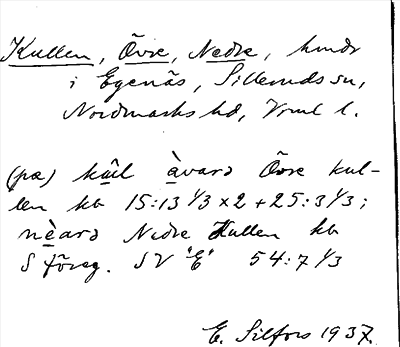 Kullen, Övre, Nedre, hmdr
i Egenäs, Silleruds sn,
Nordmarks hd, Vrml l.
(pæ) kûl àvarə Övre Kul-
len kb 15:13 1/3 x 2 + 25:3 1/3;
nèarə Nedre Kullen kb
S föreg. SV "E" 54:7 1/3
E. Silfors 1937.